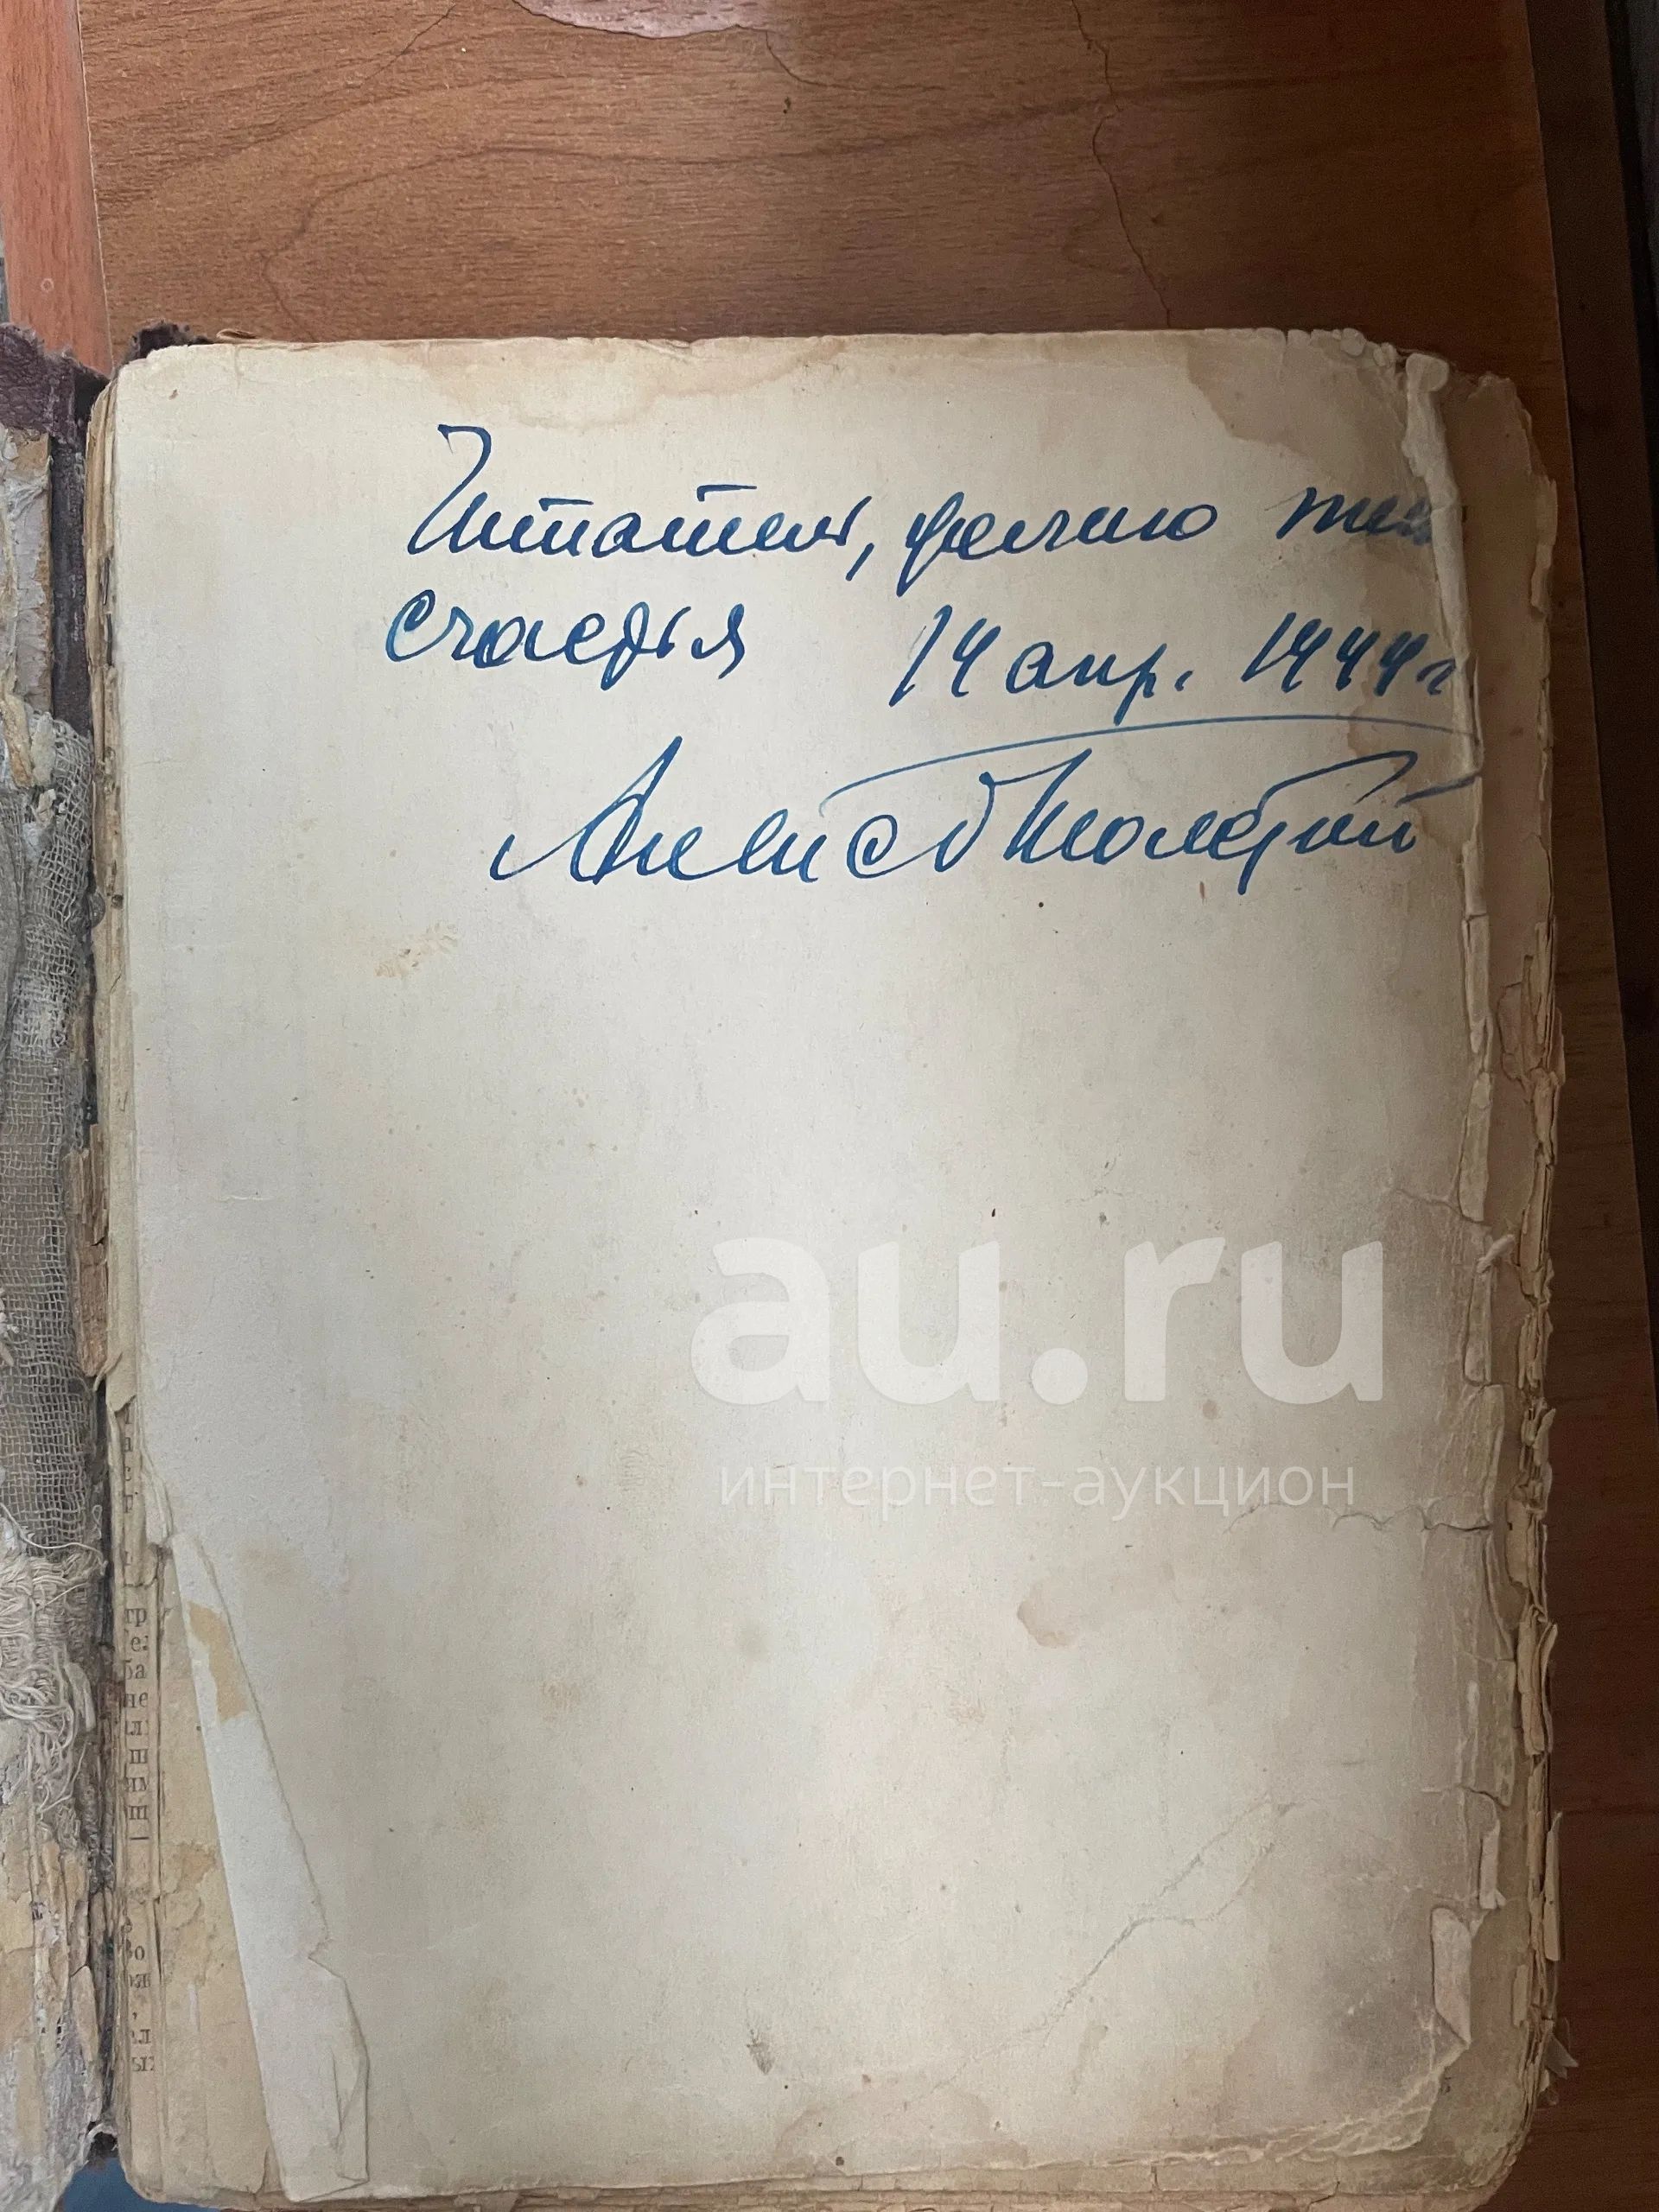 Читатель, желаю
счастья 14 апр. 1944 г
Алексей Толстой
au.ru
интернет-аукцион